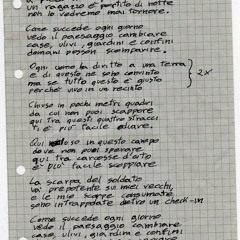 un ragazzo è partito di notte
non lo vedremo mai tornare.
Come succede ogni giorno
vedo il paesaggio cambiare
case, ulivi, giardini e confini
domani possono scomparire.
Ogni uomo ha diritto a una terra
e di questo ne sono convinto
ma se tutto questo è giusto
perché vivo in un recinto
2x
Chiuso in pochi metri quadri
da cui non puoi scappare
qui tra questi quattro stracci
ti è più facile odiare.
Qui in questo campo
dove non puoi sperare
qui tra carcasse d'auto
è più facile scoppiare
La scarpa del soldato
fa prepotente sui miei vecchi,
e le mie scarpe consumate
sono intrappolate dietro un check-in
Come succede ogni giorno
vedo il paesaggio cambiare
case, ulivi, giardini e confini